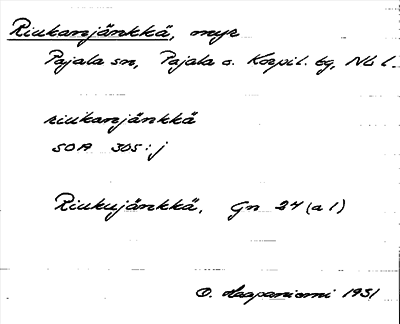 Riukanjänkkä, myr
Pajala sn, Pajala o. Korpil. tg, Nb l.
riukanjänkkä
SOA 305:j
Riukujänkkä, Gn 24 (a 1)
O. Haapaniemi 1931